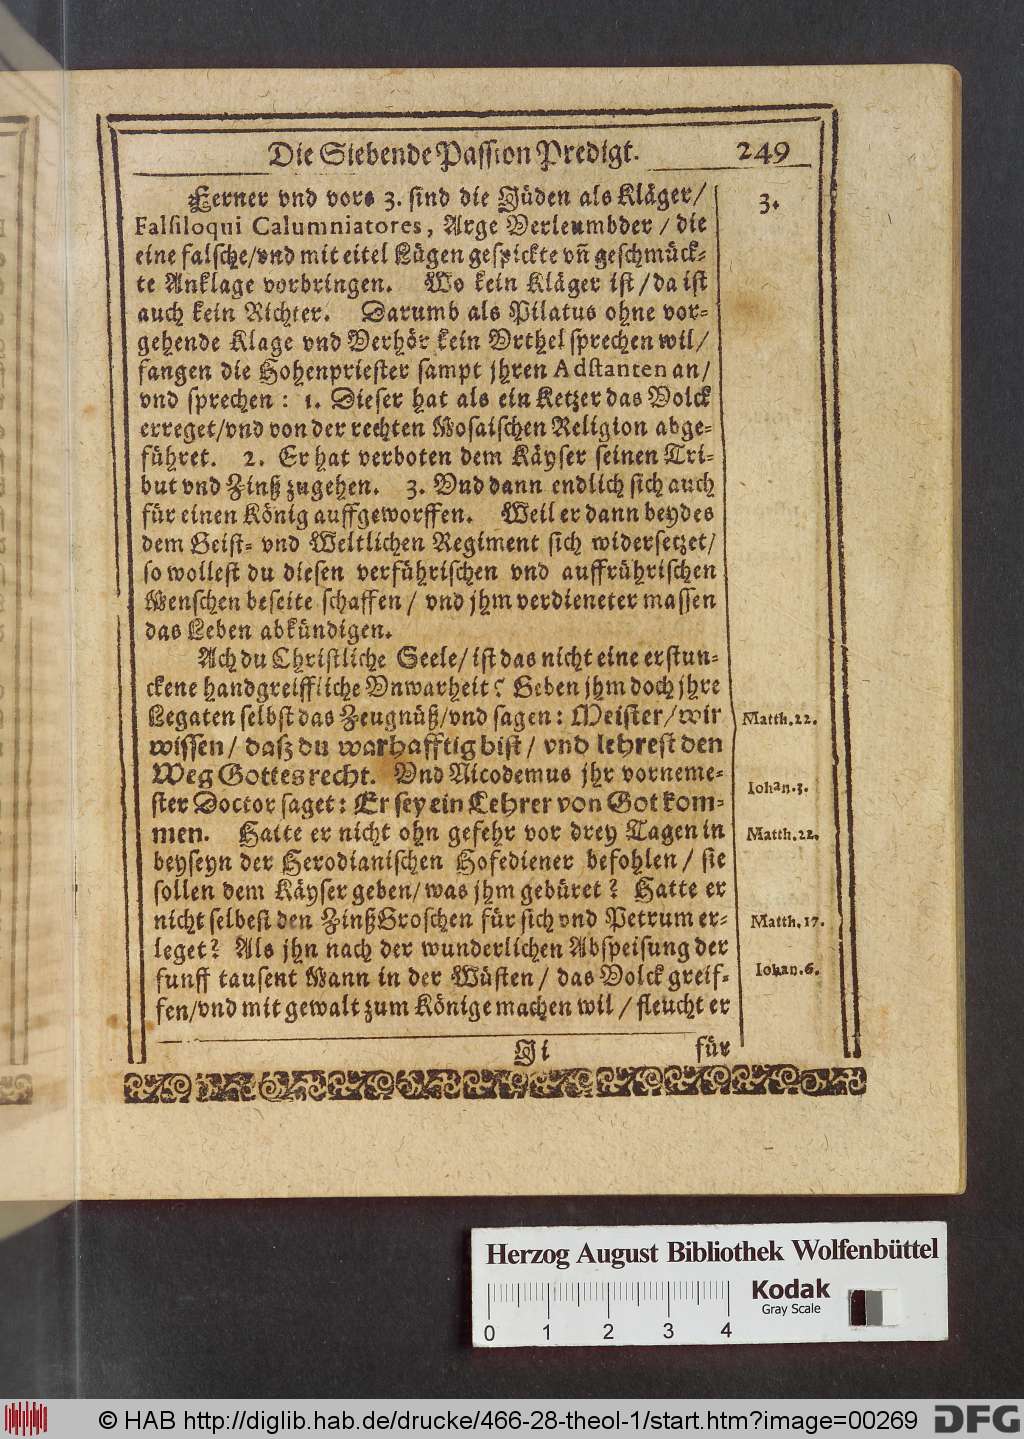 Die Siebende Passion Predigt. 249
Ferner vnd vors 3. sind die Jüden als Kläger/ 3.
Falsiloqui Calumniatores, Arge Verleumbder / die
eine falsche/vnd mit eitel Lügen gespickte vn̄ geschmück-
te Anklage vorbringen. Wo kein Kläger ist / da ist
auch kein Richter. Darumb als Pilatus ohne vor-
gehende Klage vnd Verhör kein Vrthel sprechen wil/
fangen die Hohenpriester sampt jhren Adstanten an/
vnd sprechen : 1. Dieser hat als ein Ketzer das Volck
erreget/vnd von der rechten Mosaischen Religion abge-
führet. 2. Er hat verboten dem Käyser seinen Tri-
but vnd Zinß zugehen. 3. Vnd dann endlich sich auch
für einen König auffgeworffen. Weil er dann beydes
dem Geist- vnd Weltlichen Regiment sich widersetzet/
so wollest du diesen verführischen vnd auffrührischen
Menschen beseite schaffen / vnd jhm verdieneter massen
das Leben abkündigen.
Ach du Christliche Seele/ ist das nicht eine erstun-
ckene handgreiffliche Vnwarheit? Geben jhm doch jhre
Legaten selbst das Zeugnüß/vnd sagen : Meister/wir Matth.22.
wissen / daß du warhafftig bist / vnd lehrest den
Weg Gottes recht. Vnd Nicodemus jhr vorneme-
ster Doctor saget : Er sey ein Lehrer von Got kom- Iohan.3.
men. Hatte er nicht ohn gefehr vor drey Tagen in Matth.22.
beyseyn der Herodianischen Hofediener befohlen / sie
sollen dem Käyser geben/was jhm gebüret? Hatte er
nicht selbest den ZinßGroschen für sich vnd Petrum er- Matth.17.
leget? Als jhn nach der wunderlichen Abspeisung der
funff tausent Mann in der Wüsten / das Volck greif- Iohan.6.
fen/vnd mit gewalt zum Könige machen wil / fleucht er
Ji für
Herzog August Bibliothek Wolfenbüttel
Kodak
Gray Scale
0 1 2 3 4
© HAB http://diglib.hab.de/drucke/466-28-theol-1/start.htm?image=00269 DFG